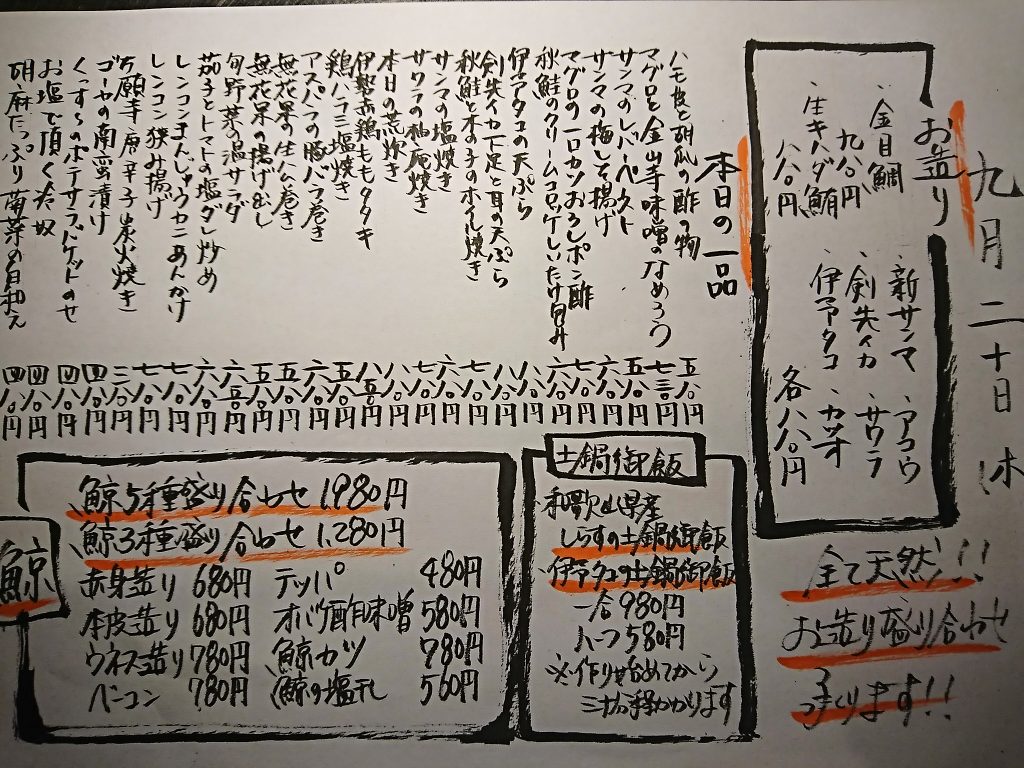 九月二十日 木
お造り
・金目鯛
九八〇円
・生キハダ鮪
八八〇円
・新サンマ ・アコウ
・剣先イカ ・サワラ
・伊予タコ ・カツオ
各八八〇円
全て天然!!
お造り盛り合わせ
つくります!!
本日の一品
ハモ皮と胡瓜の酢の物 五八〇円
マグロと金山寺味噌のなめろう 七三〇円
サンマのレバーペースト 五八〇円
サンマの梅しそ揚げ 六八〇円
マグロの一口カツおろしポン酢
秋鮭のクリームコロッケしいたけ包み
伊予タコの天ぷら
剣先イカ下足と耳の天ぷら
秋鮭と木の子のホイル焼き
サンマの塩焼き
サワラの柚庵焼き
本日の荒炊き
伊勢赤鶏ももタタキ
鶏ハラミ塩焼き
アスパラの豚バラ巻き
無花果の生ハム巻き
無花果の揚げ出し
旬野菜の温サラダ
茄子とトマトの塩ダレ炒め
レンコンまんじゅうカニあんかけ
レンコン挟み揚げ
万願寺唐辛子炭火焼き
ゴーヤの南蛮漬け
くんすものポテサラバケットのせ
お塩で頂く冷奴
胡麻たっぷり菊菜の白和え
土鍋御飯
和歌山県産
しらすの土鍋御飯
・伊予タコの土鍋御飯
一合980円
ハーフ580円
※作り始めてから
三十分程かかります
鯨
鯨5種盛り合わせ 1,980円
鯨3種盛り合わせ 1,280円
赤身造り 680円 テッパ 480円
本皮造り 680円 オバケ酢味噌 580円
ウネス造り 780円 鯨カツ 780円
ベーコン 780円 鯨の塩干し 560円